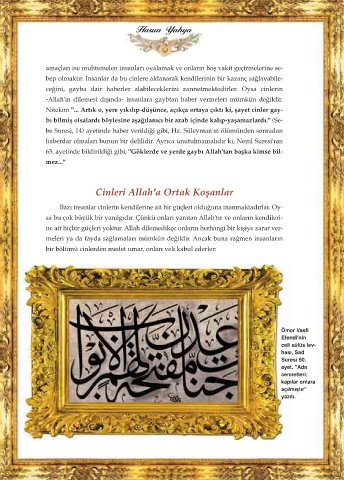 Harun Yahya
amaçları ise muhtemelen insanları oyalamak ve onların boş vakit geçirmelerine se-
bep olmaktır. İnsanlar da bu cinlere aklanarak kendilerinin bir kazanç sağlayabile-
ceğini, gayba dair haberler alabileceklerini zannetmektedirler. Oysa cinlerin
-Allah'ın dilemesi dışında- insanlara gaybtan haber vermeleri mümkün değildir.
Nitekim "... Artık o, yere yıkılıp-düşünce, açıkça ortaya çıktı ki, şayet cinler gay-
bı bilmiş olsalardı böylesine aşağılanıcı bir azab içinde kalıp-yaşamazlardı." (Se-
be Suresi, 14) ayetinde haber verildiği gibi, Hz. Süleyman'ın ölümünden sonradan
haberdar olmaları bunun bir delilidir. Ayrıca unutulmamalıdır ki, Neml Suresi'nin
65. ayetinde bildirildiği gibi, "Göklerde ve yerde gaybı Allah'tan başka kimse bil-
mez..."
Cinleri Allah'a Ortak Koşanlar
Bazı insanlar cinlerin kendilerine ait bir güçleri olduğuna inanmaktadırlar. Oy-
sa bu çok büyük bir yanılgıdır. Çünkü onları yaratan Allah'tır ve onların kendileri-
ne ait hiçbir güçleri yoktur. Allah dilemedikçe onların herhangi bir kişiye zarar ver-
meleri ya da fayda sağlamaları mümkün değildir. Ancak buna rağmen insanların
bir bölümü cinlerden medet umar, onları veli kabul ederler:
جنات عدن مفتحة لهم الأبواب
Ömer Vasfi
Efendi'nin
celi sülüs lev-
hası, Sad
Suresi 50.
ayet. "Adn
cennetleri;
kapılar onlara
açılmıştır"
yazılı.